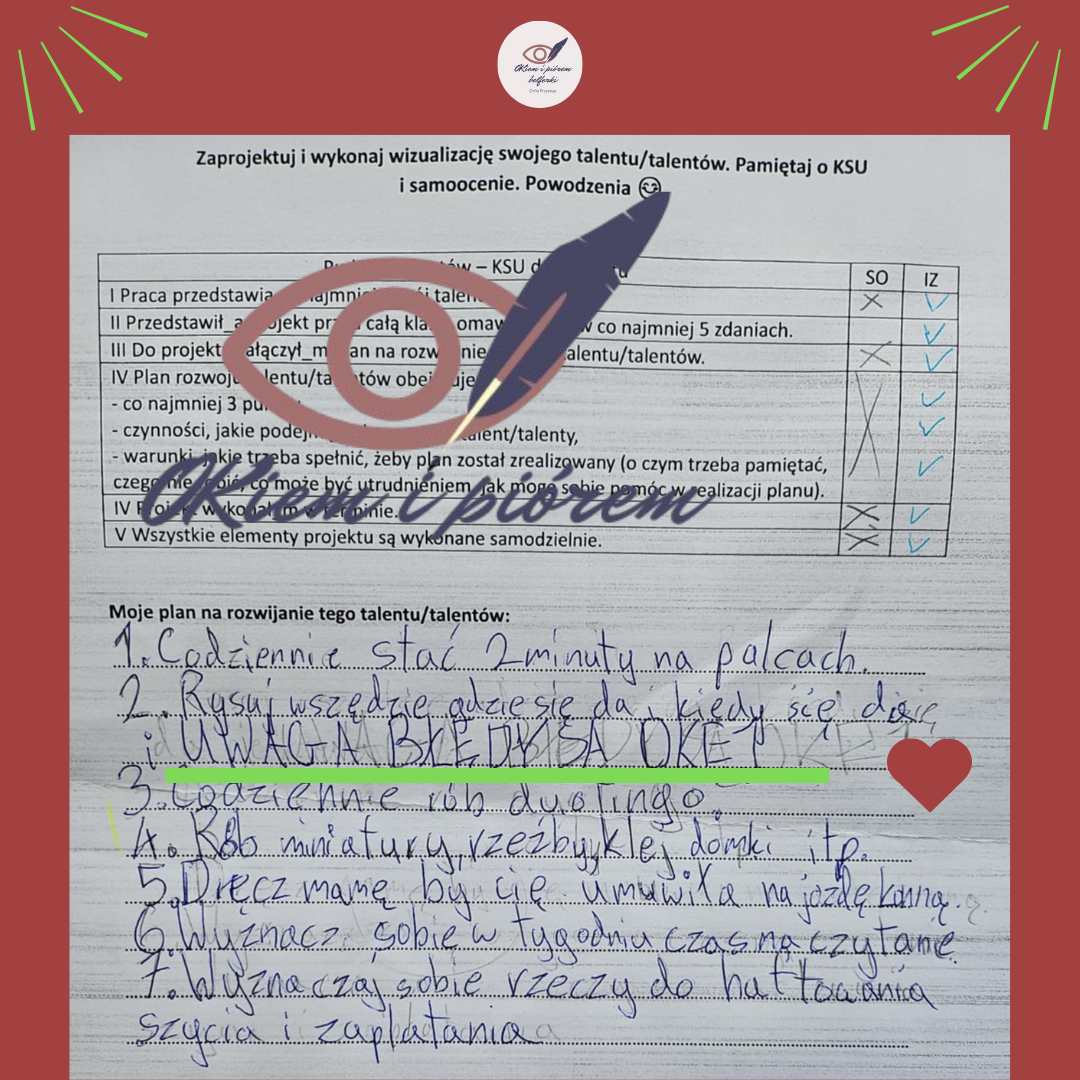 OKiem i piórem
belferki
Zofia Przywuja
Zaprojektuj i wykonaj wizualizację swojego talentu/talentów. Pamiętaj o KSU
i samoocenie. Powodzenia
– KSU SO IZ
I Praca przedstawia talen
II Przedstawił_a całą kla omaw w co najmniej 5 zdaniach.
III Do projekt łączył_m an na rozw nie alentu/talentów.
IV Plan rozwoju lentu/ta tów obejmuje
- co najmniej 3 pu
- czynności, jakie podejm talent/talenty,
- warunki, jakie trzeba spełnić, żeby plan został zrealizowany (o czym trzeba pamiętać,
czego nie robić, co może być utrudnieniem, jak mogę sobie pomóc w realizacji planu).
OKiem i piórem
IV Projekt wykonałam w terminie.
V Wszystkie elementy projektu są wykonane samodzielnie.
Moje plan na rozwijanie tego talentu/talentów:
1. Codziennie stać 2 minuty na palcach.
2. Rysuj wszędzie gdzie się da i kiedy się
i UWAGA BŁĘDY SĄ OKEJ
3. Codziennie rób duolingo.
4. Rób miniatury, rzeźby, klej domki itp.
5. Dręcz mamę by cię umuwiła na jazdę konną.
6. Wyznacz sobie w tygodniu czas na czytanie.
7. Wyznaczaj sobie rzeczy do haftowania
szycia i zaplatania